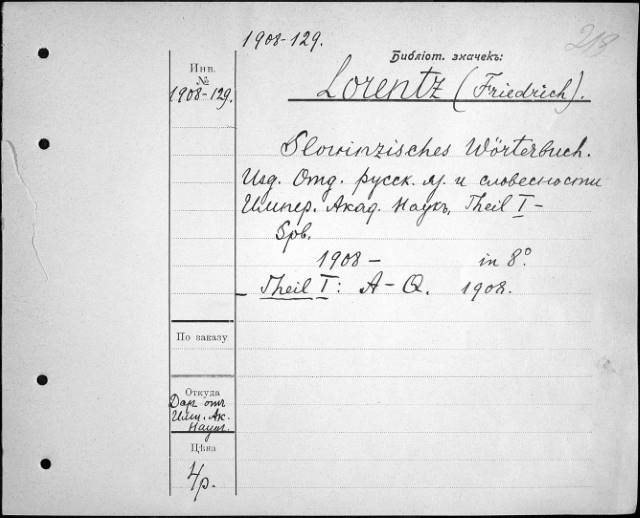 1908-129.
219
Инв.
№
1908-129.
Библіот. значекъ:
Lorentz (Friedrich).
Slowinzisches Wörterbuch.
Изд. Отд. русск. яз. и словесности
Импер. Акад. Наукъ, Theil I-
Spb.
1908 - in 8°.
Theil I: A-Q. 1908.
По заказу
Откуда
Даръ отъ
Имп. Ак.
Наукъ.
Цѣна
4р.